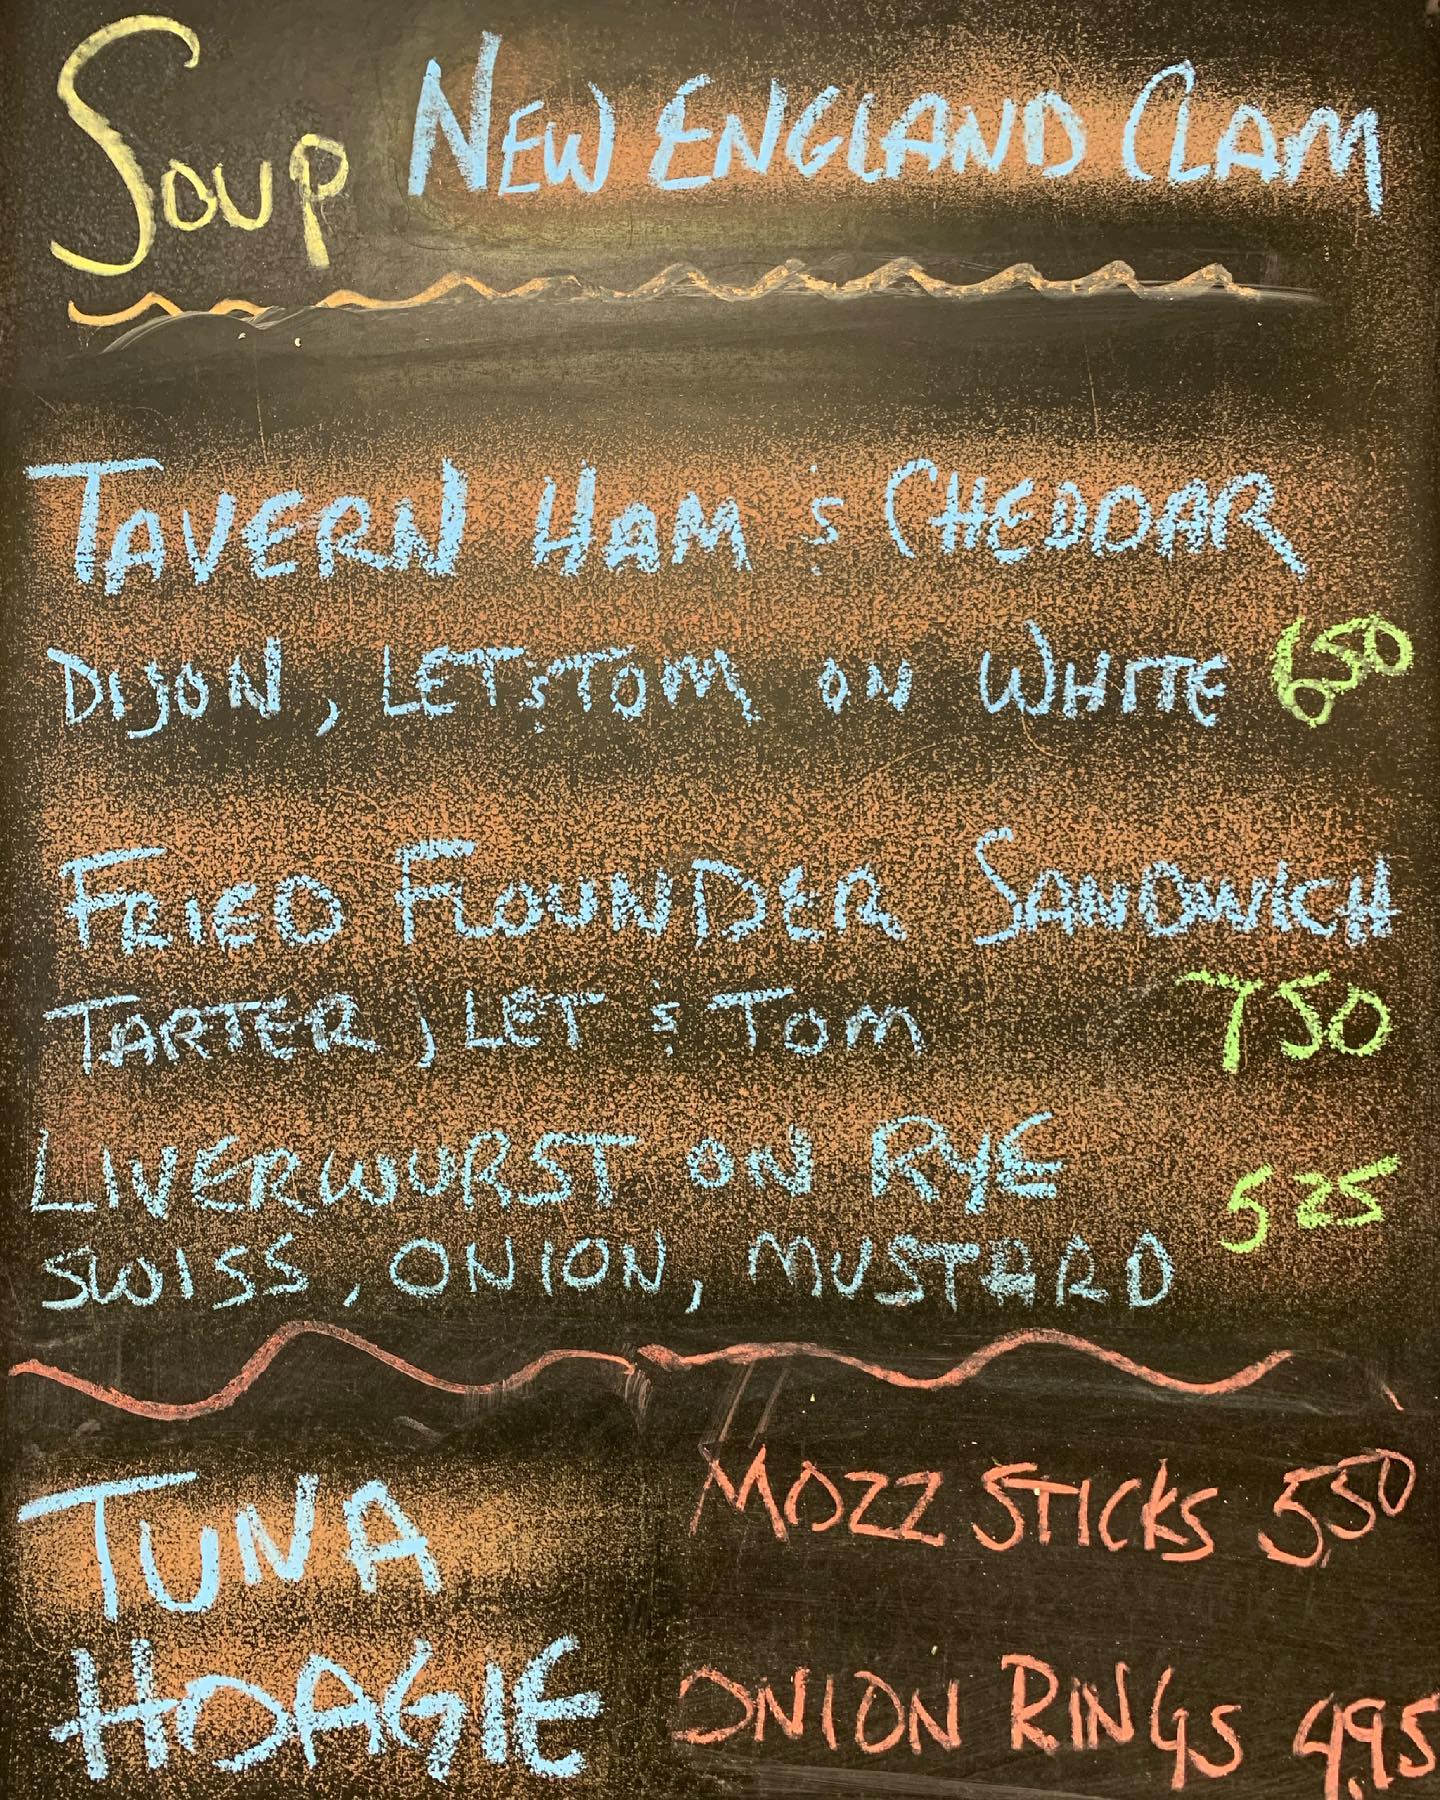 Soup NEW ENGLAND CLAM
TAVERN HAM & CHEDDAR
DIJON, LET & TOM ON WHITE 650
FRIED FLOUNDER SANDWICH
TARTER, LET & TOM 750
LIVERWURST ON RYE
SWISS, ONION, MUSTARD 525
TUNA
HOAGIE
MOZZ STICKS 550
ONION RINGS 4.95